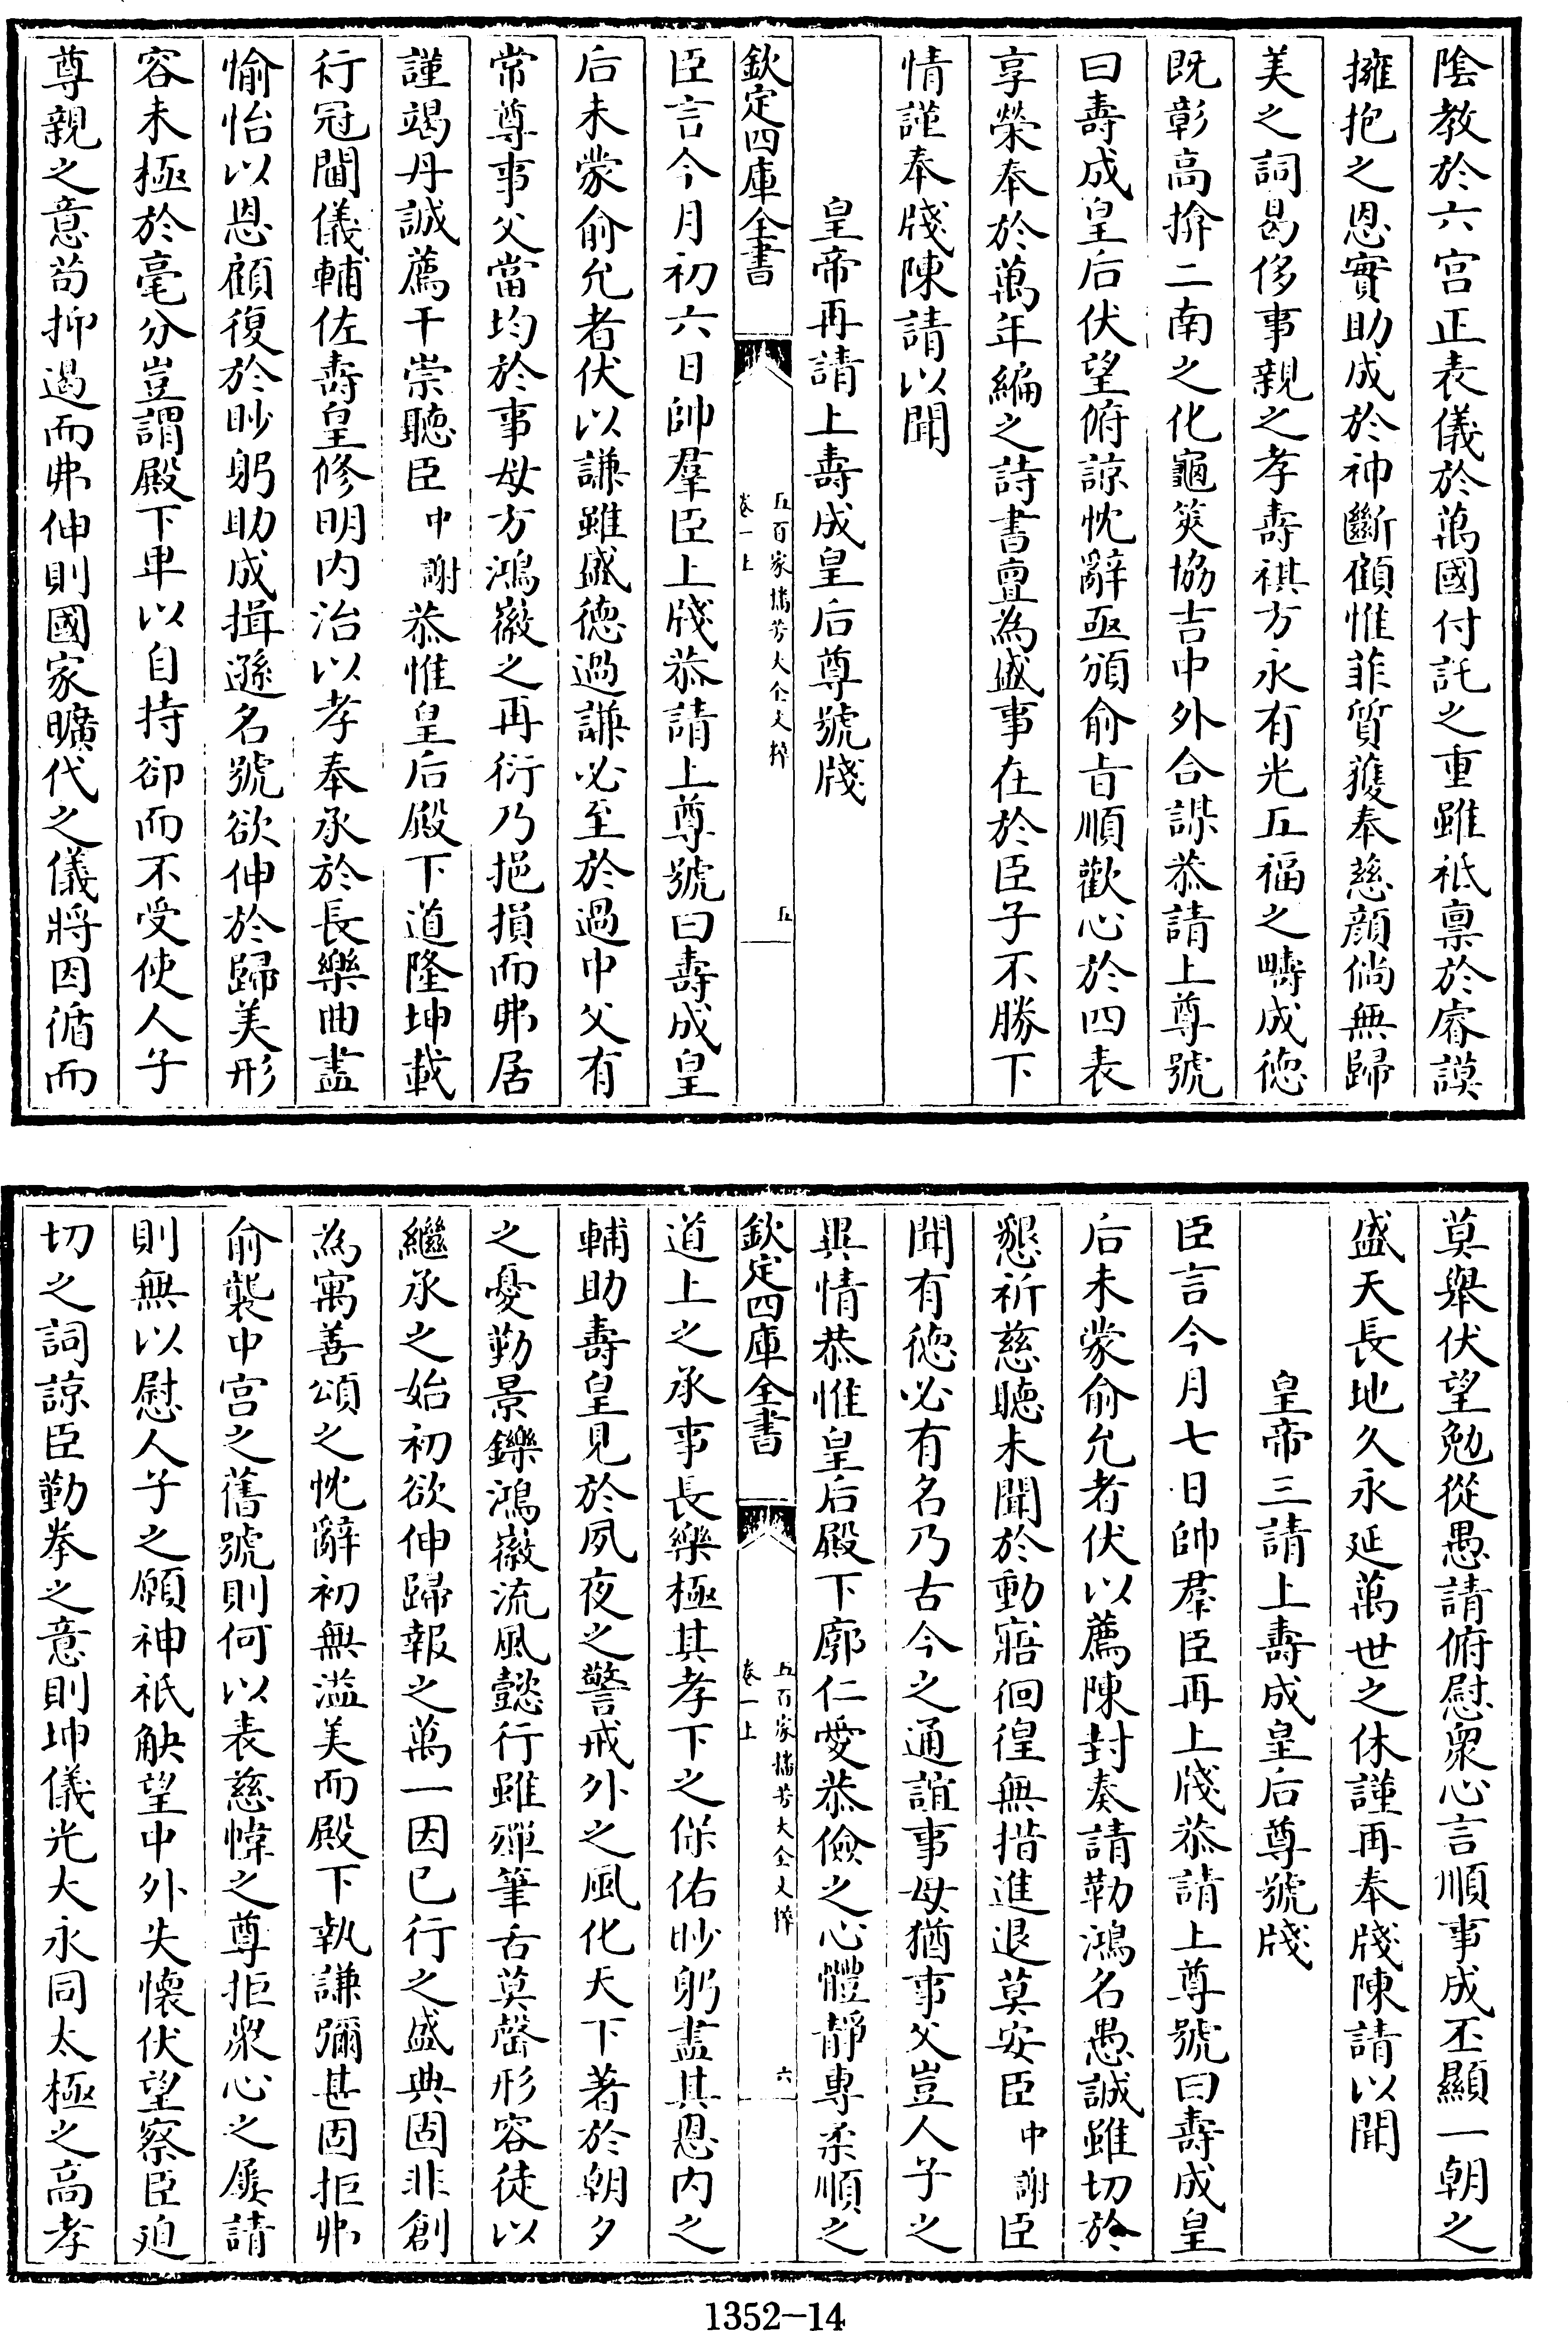 陰教於六宫正表儀於萬國付託之重雖祗禀於睿謨
擁抱之恩實助成於神斷顧惟菲質獲奉慈顔倘無歸
美之詞曷侈事親之孝壽祺方永有光五福之疇成徳
既彰高揜二南之化龜筴協吉中外合謀恭請上尊號
曰壽成皇后伏望俯諒忱辭亟頒俞㫖順歡心於四表
享榮奉於萬年編之詩書亶為盛事在於臣子不勝下
情謹奉牋陳請以聞
皇帝再請上壽成皇后尊號牋
欽定四庫全書
五百家播芳大全文粹
卷一上
五
臣言今月初六日帥羣臣上牋恭請上尊號曰壽成皇
后未蒙俞允者伏以謙雖盛徳過謙必至於過中父有
常尊事父當均於事母方鴻徽之再衍乃挹損而弗居
謹竭丹誠薦干崇聽臣中謝恭惟皇后殿下道隆坤載
行冠閫儀輔佐壽皇修明内治以孝奉承於長樂曲盡
愉怡以恩顧復於眇躬助成揖遜名號欲伸於歸美形
容未極於毫分豈謂殿下卑以自持卻而不受使人子
尊親之意茍抑遏而弗伸則國家曠代之儀將因循而
莫舉伏望勉從愚請俯慰衆心言順事成丕顯一朝之
盛天長地久永延萬世之休謹再奉牋陳請以聞
皇帝三請上壽成皇后尊號牋
臣言今月七日帥羣臣再上牋恭請上尊號曰壽成皇
后未蒙俞允者伏以薦陳封奏請勒鴻名愚誠雖切於
懇祈慈聽未聞於動寤徊徨無措進退莫安臣中謝臣
聞有徳必有名乃古今之通誼事母猶事父豈人子之
異情恭惟皇后殿下廓仁愛恭儉之心體静專柔順之
欽定四庫全書
五百家播芳大全文粹
卷一上
六
道上之承事長樂極其孝下之保佑眇躬盡其恩内之
輔助壽皇見於夙夜之警戒外之風化天下著於朝夕
之憂勤景鑠鴻徽流風懿行雖殫筆舌莫罄形容徒以
繼承之始初欲伸歸報之萬一因已行之盛典固非創
為寓善頌之忱辭初無溢美而殿下執謙彌甚固拒弗
俞襲中宫之舊號則何以表慈幃之尊拒衆心之屢請
則無以慰人子之願神祇觖望中外失懷伏望察臣廹
切之詞諒臣勤拳之意則坤儀光大永同太極之高孝
1352-14